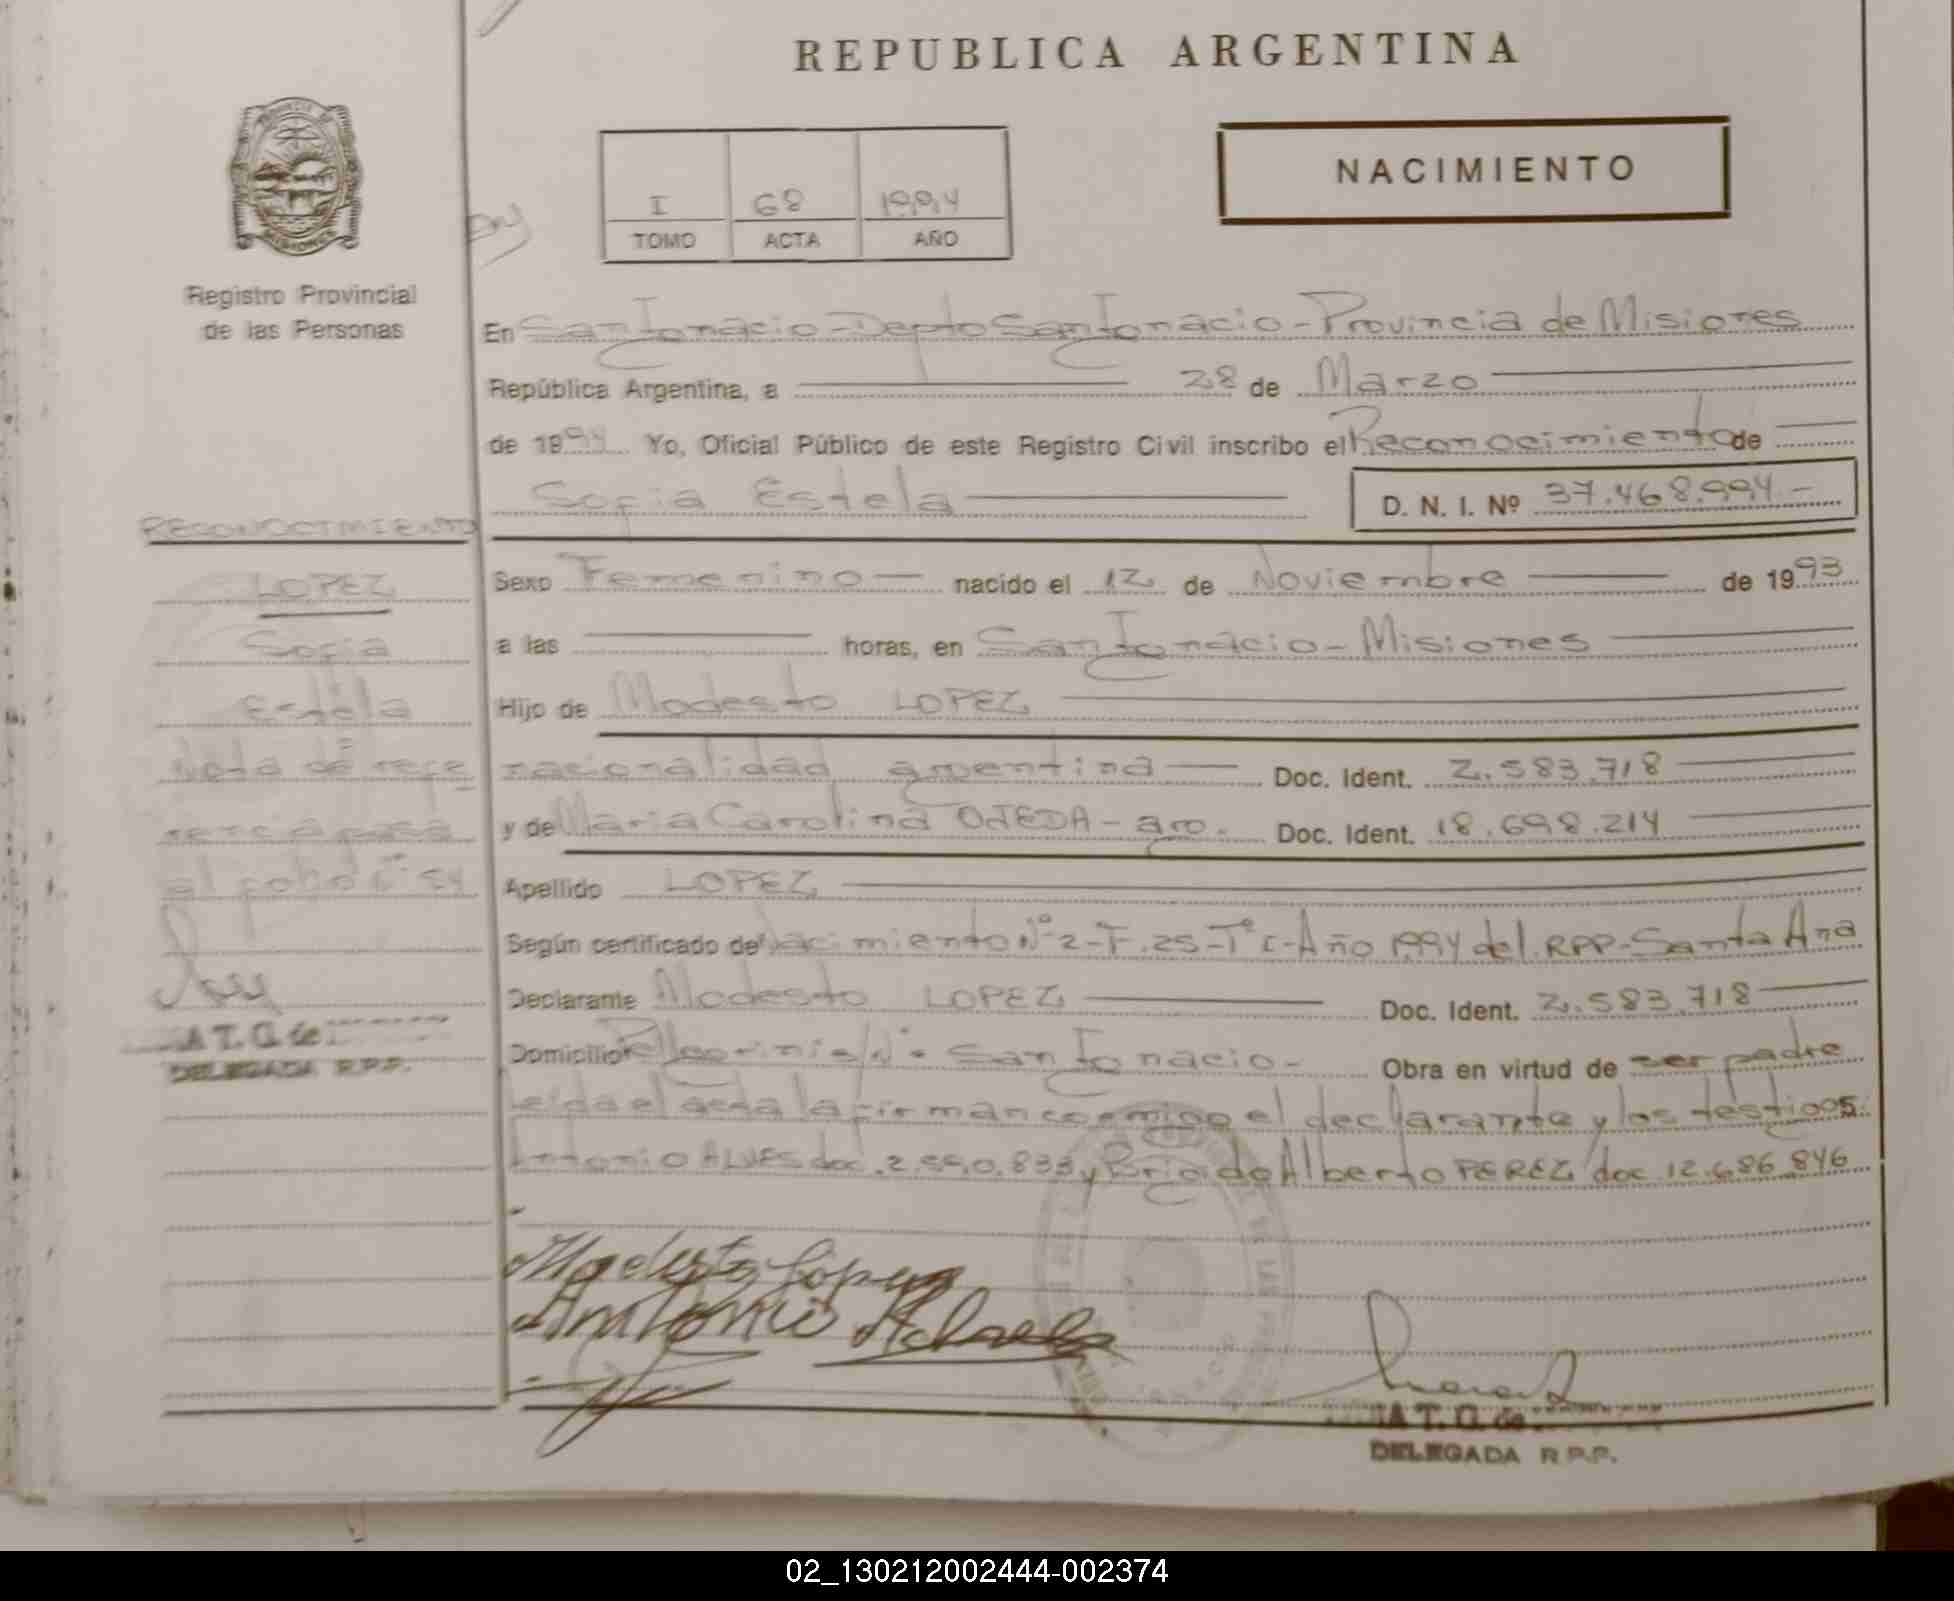 REPUBLICA ARGENTINA
NACIMIENTO
I 68 1994
TOMO ACTA AÑO
Registro Provincial
de las Personas
En San Ignacio - Depto San Ignacio - Provincia de Misiones
República Argentina, a 28 de Marzo
de 1994 Yo, Oficial Público de este Registro Civil inscribo el Reconocimiento de
Sofia Estela D. N. I. Nº 37.468.994.-
RECONOCIMIENTO
LOPEZ
Sofia
Estela
Nota de refe
rencia pasa
al folio
A T. G. de
DELEGADA R.P.P.
Sexo Femenino nacido el 12 de Noviembre de 1993
a las horas, en San Ignacio - Misiones
Hijo de Modesto LOPEZ
nacionalidad argentina Doc. Ident. 2.583.718
y de Maria Carolina OJEDA - arg. Doc. Ident. 18.698.214
Apellido LOPEZ
Según certificado de Nacimiento Nº 2 - F. 25 - Tº I - Año 1994 del RPP - Santa Ana
Declarante Modesto LOPEZ Doc. Ident. 2.583.718
Domicilio Pellegrini s/Nº San Ignacio - Obra en virtud de ser padre
Leida el acta la firman conmigo el declarante y los testigos:
Antonio ALVES doc. 2.550.833 y Brigido Alberto PEREZ doc. 12.686.846
Modesto Lópes
Antonio
A T. G. de
DELEGADA R P.P.
02_130212002444-002374